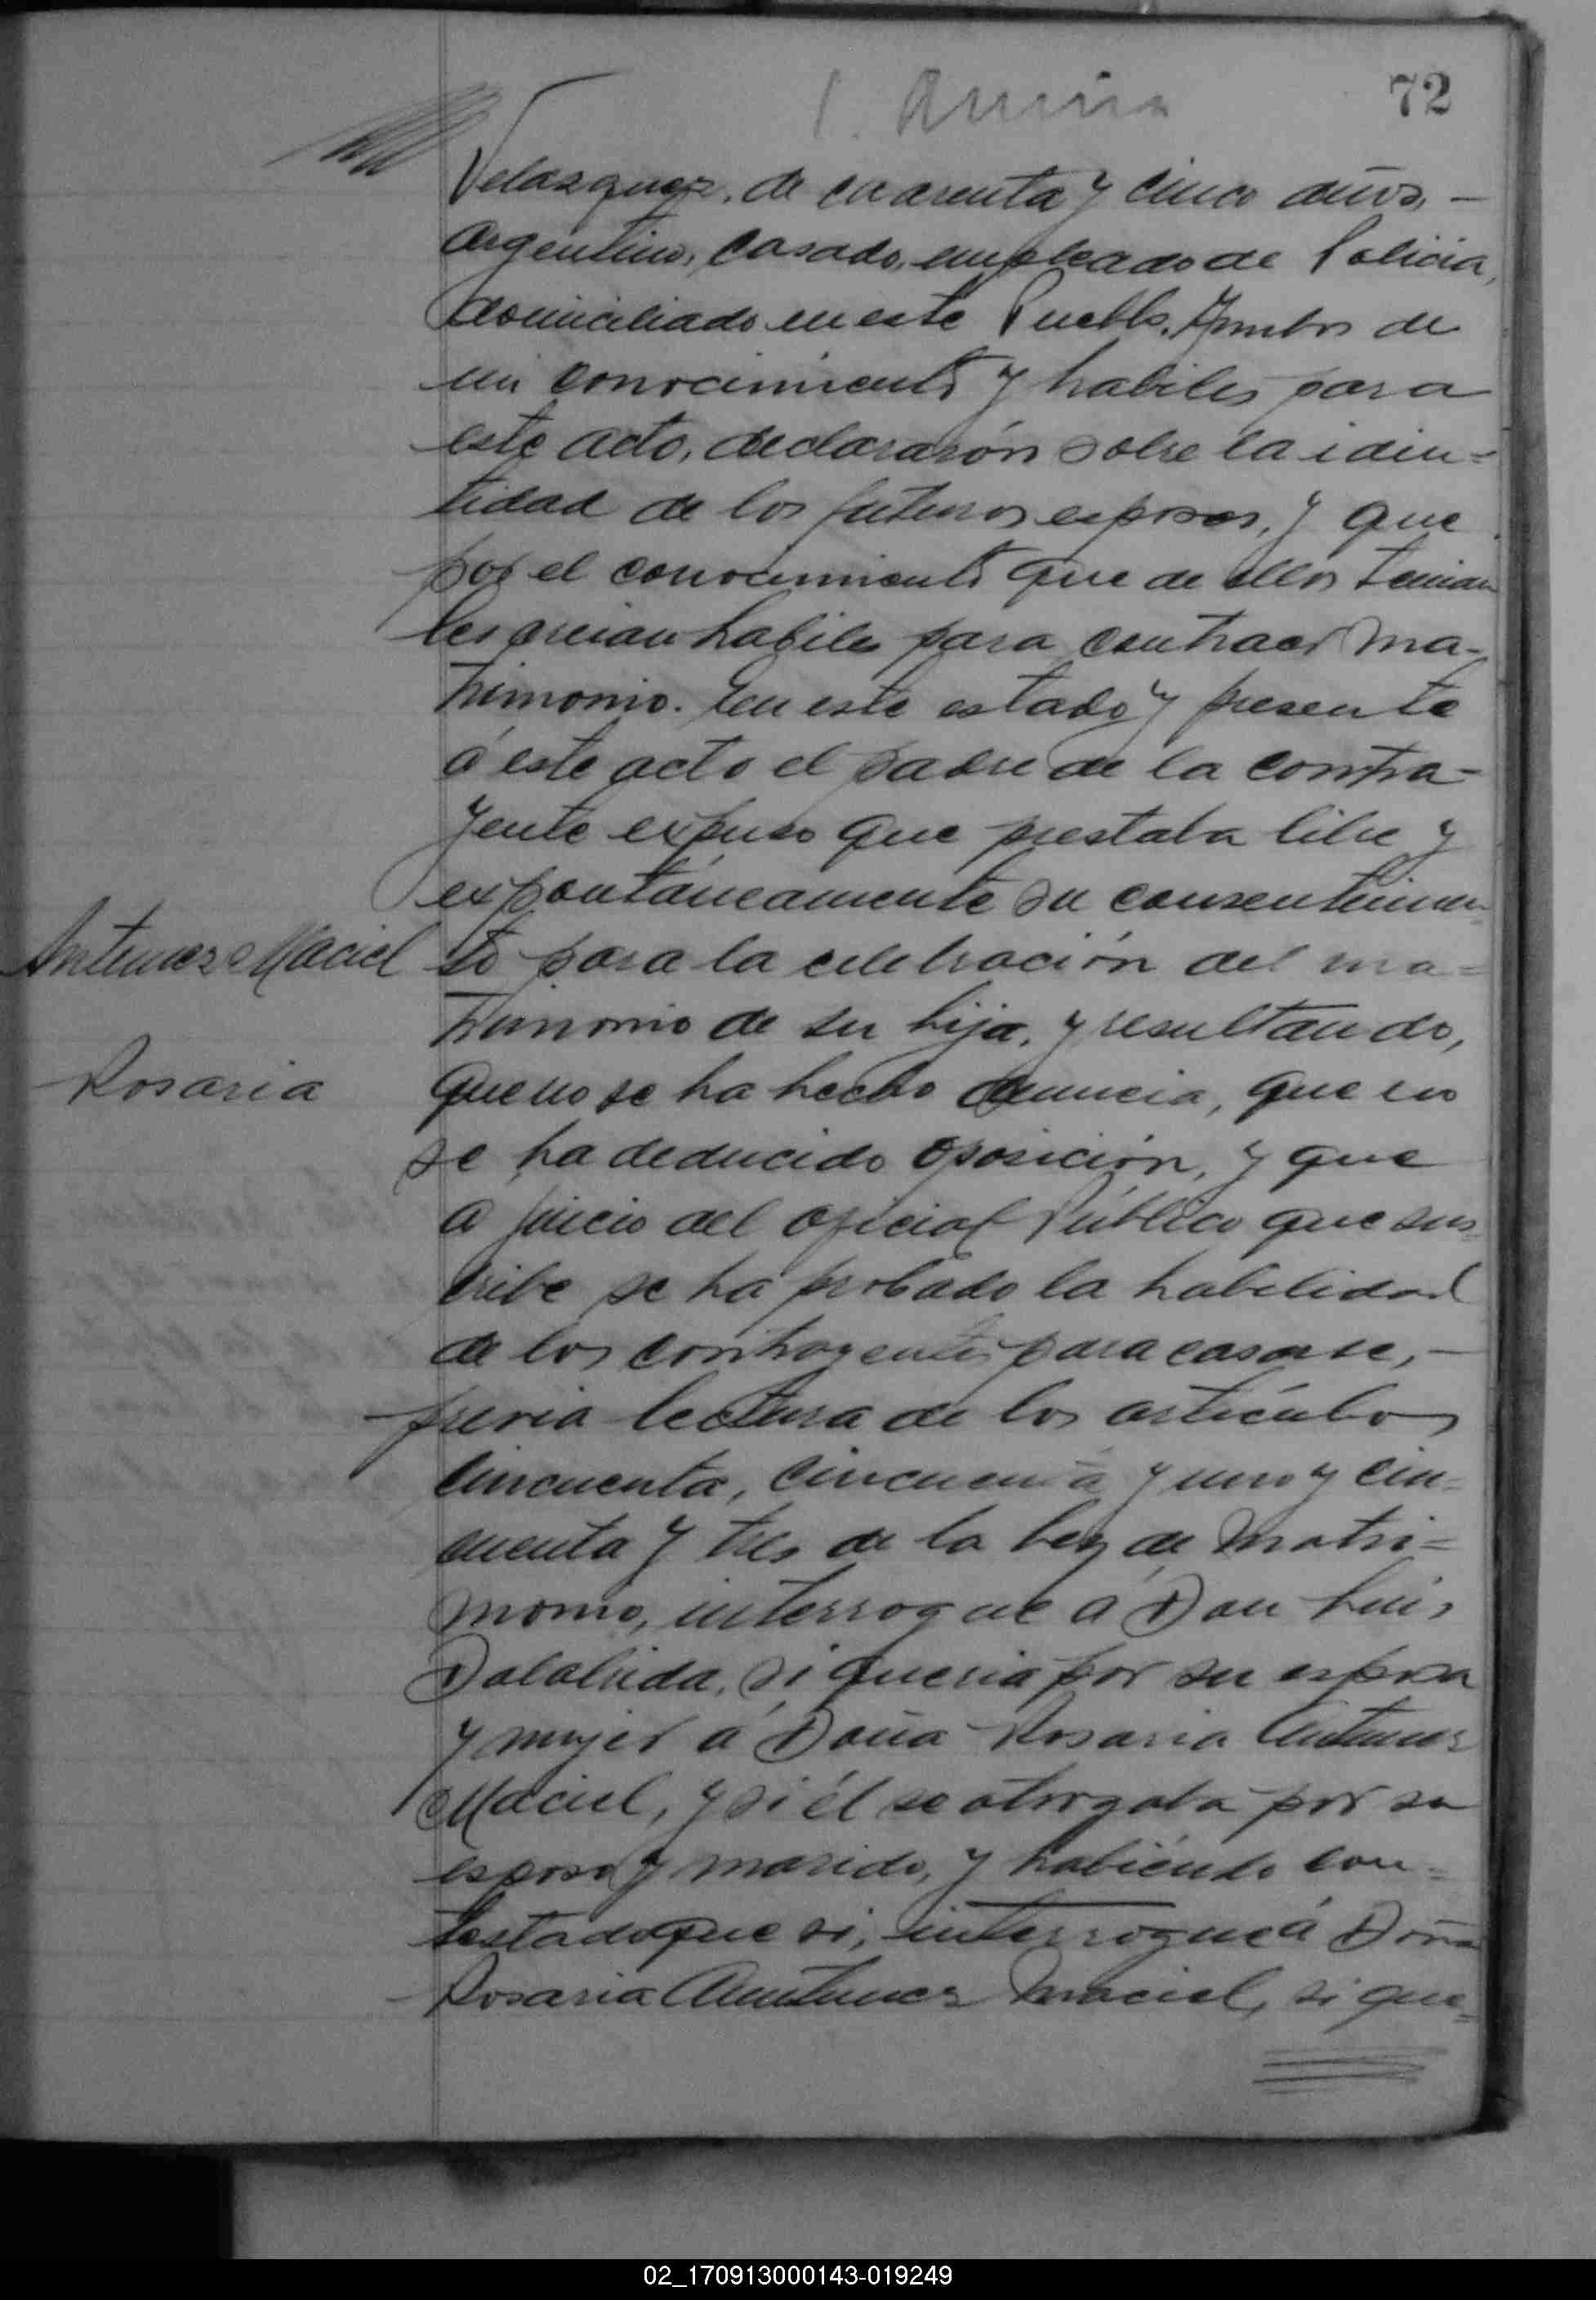 72
Velazquez, de cuarenta y cinco años, —
Argentino, casado, empleado de Policia,
domiciliado en este Pueblo. Ambos de
mi conocimiento y habiles para
este acto, declararón sobre la iden=
tidad de los futuros esposos, y que
por el conocimiento que de ellos tenian
les creian habiles para contraer ma-
trimonio. En este estado y presente
á este acto el padre de la contra-
yente expuso que prestaba libre y
expontáneamente su consentimien
Antunez Maciel
to para la celebración del ma=
trimonio de su hija, y resultando,
Rosaria
que no se ha hecho denuncia, que no
se ha deducido oposición, y que
a juicio del oficial Público que sus
cribe se ha probado la habilidad
de los contrayentes para casarse, —
previa lectura de los artículos
cincuenta, cincuenta y uno y cin-
cuenta y tres de la Ley de Matri=
monio, interrogué á Don Luis
Dalalrida, si queria por su esposa
y mujer á Doña Rosaria Antunez
Maciel, y si él se otorgaba por su
esposo y marido, y habiendo con=
testado que si, interrogué á Doña
Rosaria Antunez Maciel, si que=
02_170913000143-019249